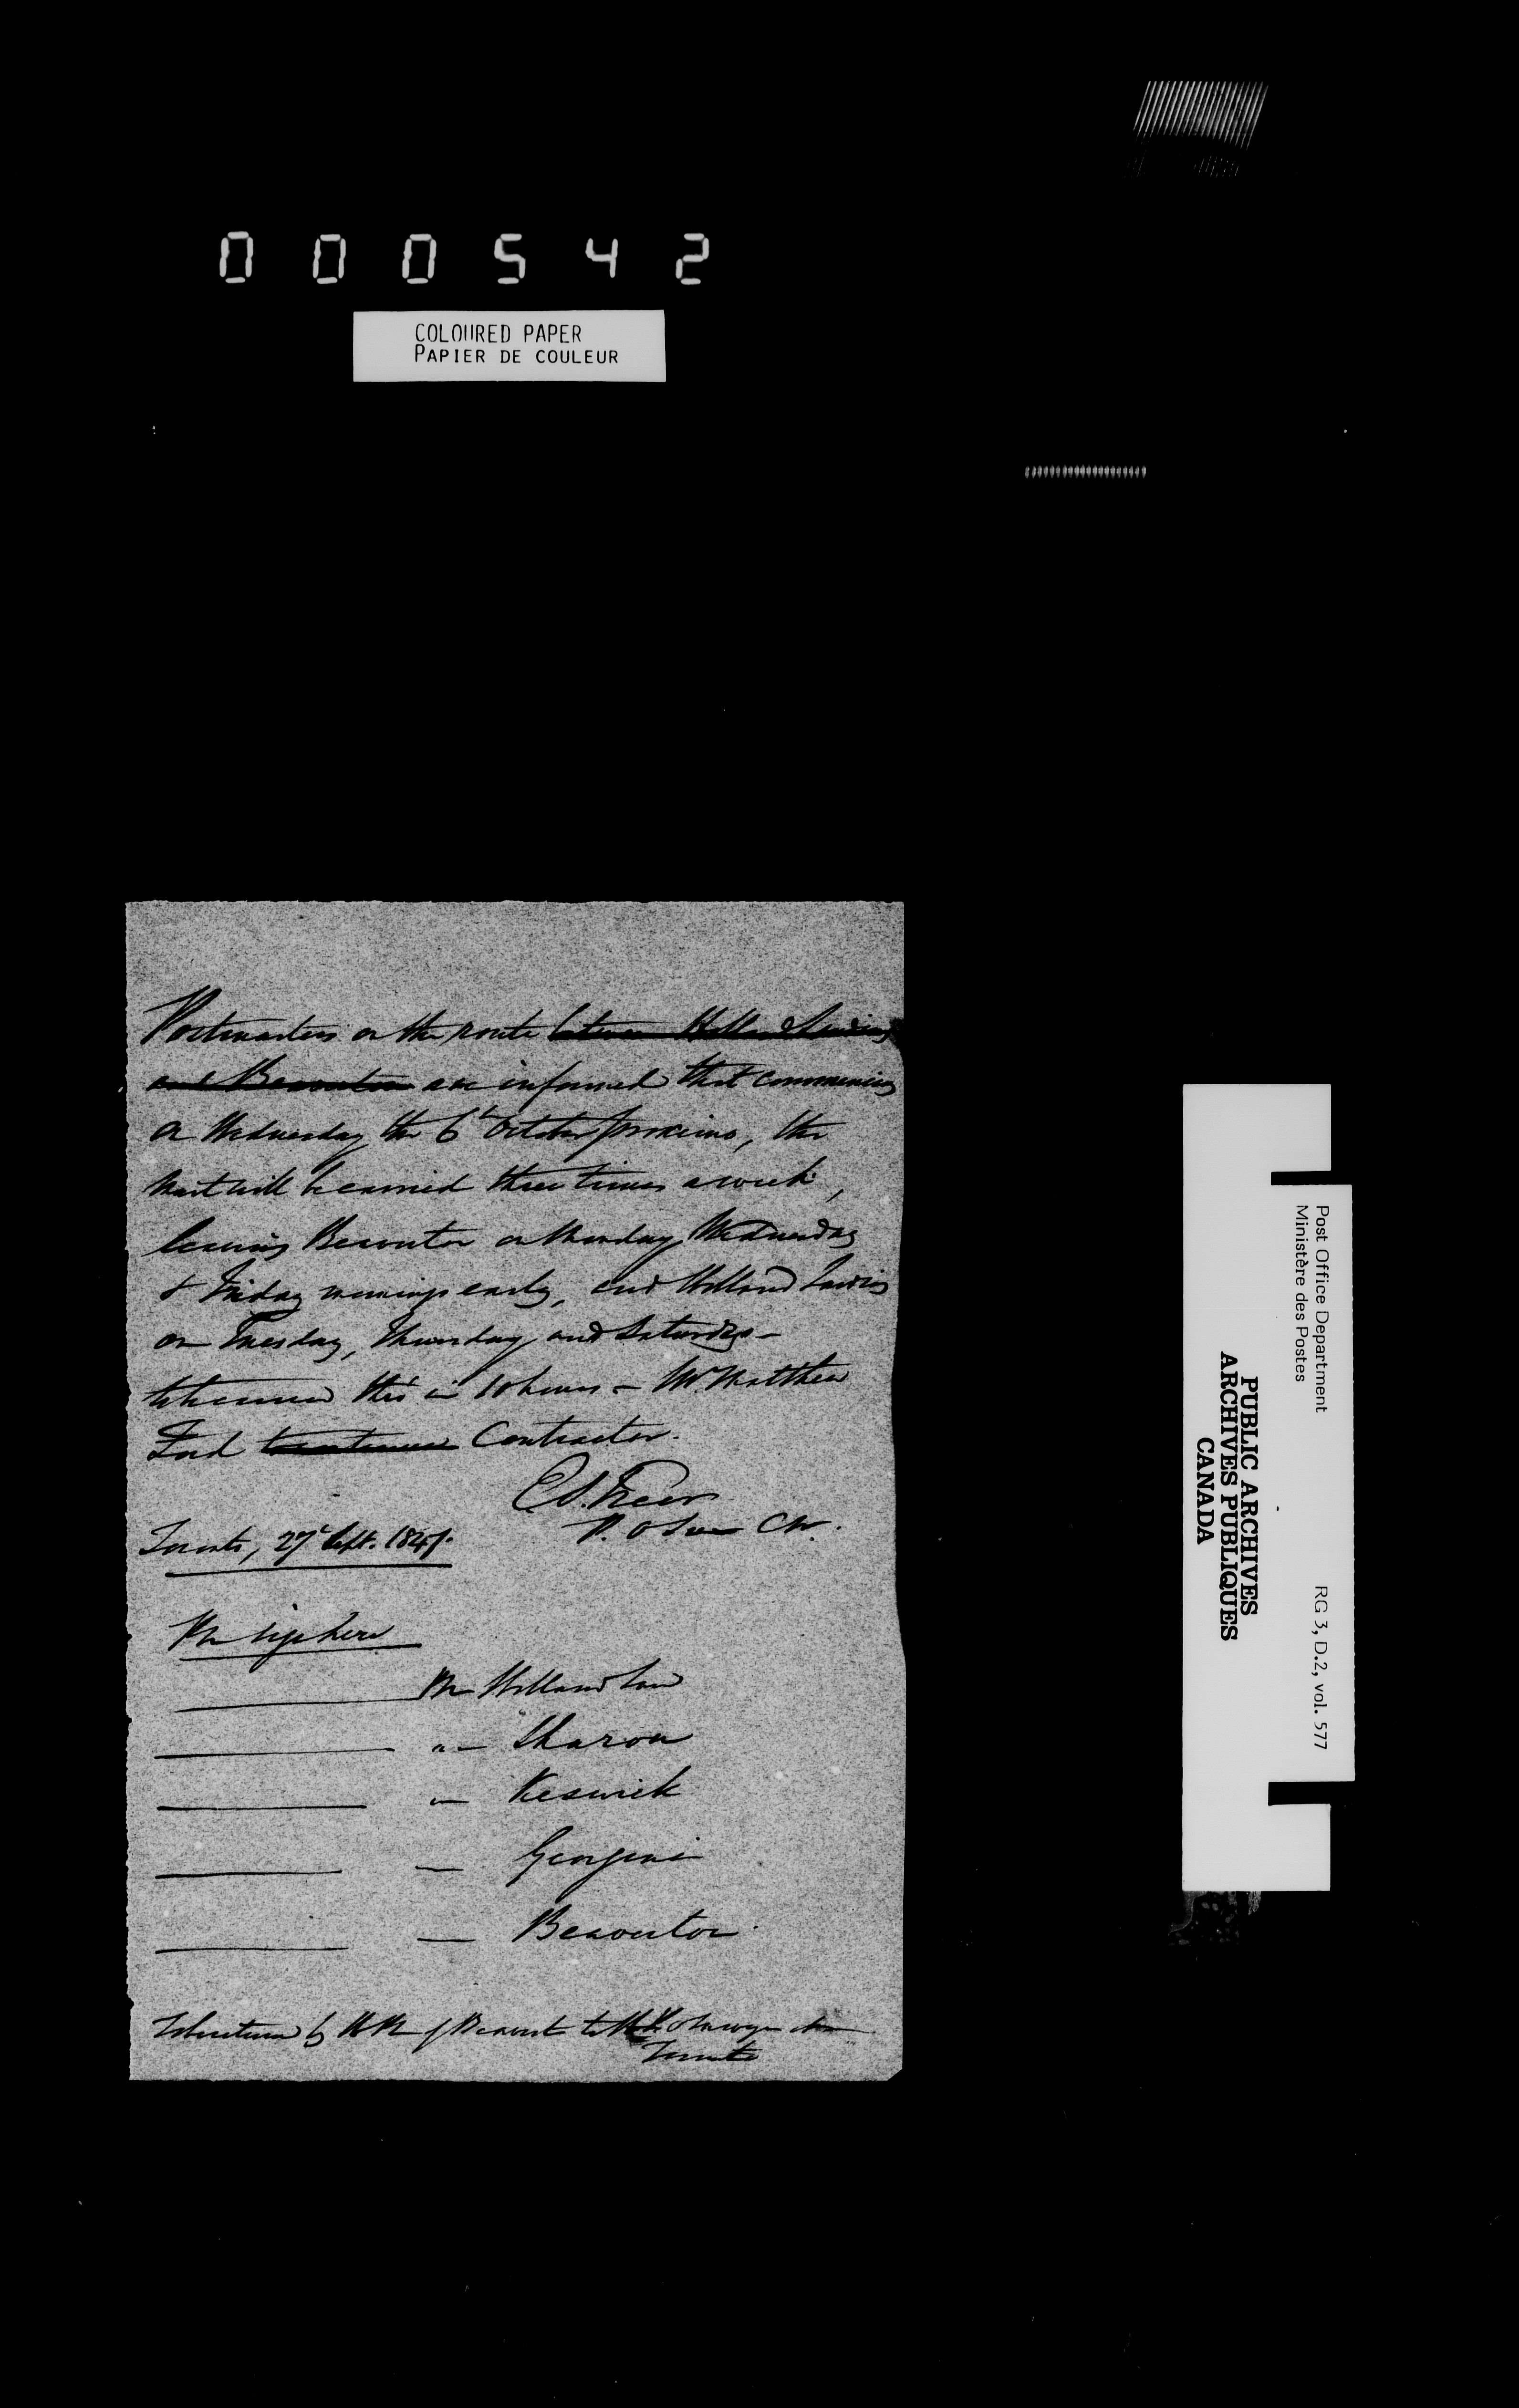 000542
COLOURED PAPER
PAPIER DE COULEUR
Postmasters on the route between Holland Landing
and Beaverton are informed that commencing
on Wednesday the 6th October proximo, the
Mail will be carried three times a week,
leaving Beaverton on Monday, Wednesday
& Friday mornings early, and Holland Landing
on Tuesday, Thursday and Saturdays –
to be carried thro' in 10 hours – Mr. Matthew
Contractor.
E.S. Freer
P. O. Surr C.W.
Toronto, 27th Sept. 1847.
PM sign here
PM Holland Land
" – Sharon
" – Keswick
— Georgina
— Beaverton
To be returned by the PM of Beavert to the P.O. Surveyor
Toronto
Post Office Department
Ministère des Postes
RG 3, D.2, vol. 577
PUBLIC ARCHIVES
ARCHIVES PUBLIQUES
CANADA